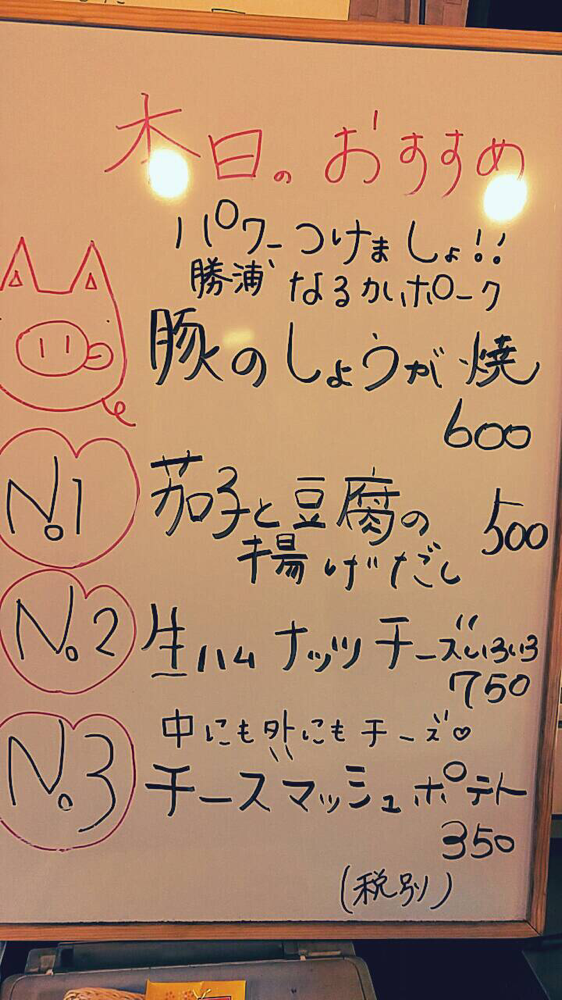 本日のおすすめ
パワーつけましょ!!
勝浦 なるかいポーク
豚のしょうが焼
600
No.1 茄子と豆腐の 500
揚げだし
No.2 生ハム ナッツ チーズいろいろ
750
中にも外にもチーズ♡
No.3 チーズマッシュポテト
350
(税別)